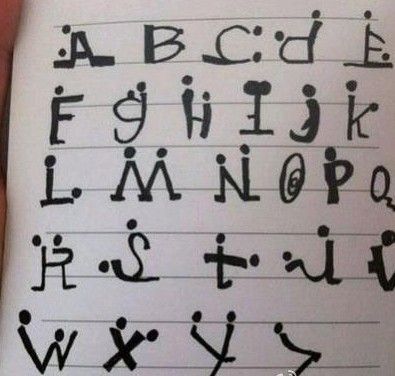 A B C d E
F g H I J K
L M N O P Q
R S t u V
W X Y Z